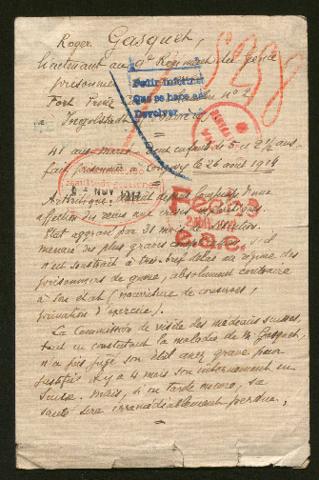 Roger Gasquet,
lieutenant au 4e Régiment du génie
prisonnier
Fort Prince n° 2
à Ingolstadt,
Pedir informe
Que se hace en
Devolver
41 ans, marié, deux enfants de 5 et 2 ans
fait prisonnier à Longwy le 26 août 1914
6 NOV 1917
Arthritique, d'une
affection des reins aux crises
Etat aggravé par 31 mois de
menacé des plus graves s'il
n'est soustrait à très bref délai au régime des
prisonniers de guerre, absolument contraire
à son état (nourriture de conserves;
privation d'exercice).
Fecha
La Commission de visite des médecins suisses,
tout en constatant la maladie de M. Gasquet,
n'a pas jugé son état assez grave pour
justifier il y a 4 mois son internement en
Suisse. Mais, si on tarde encore, sa
santé sera irrémédiablement perdue.